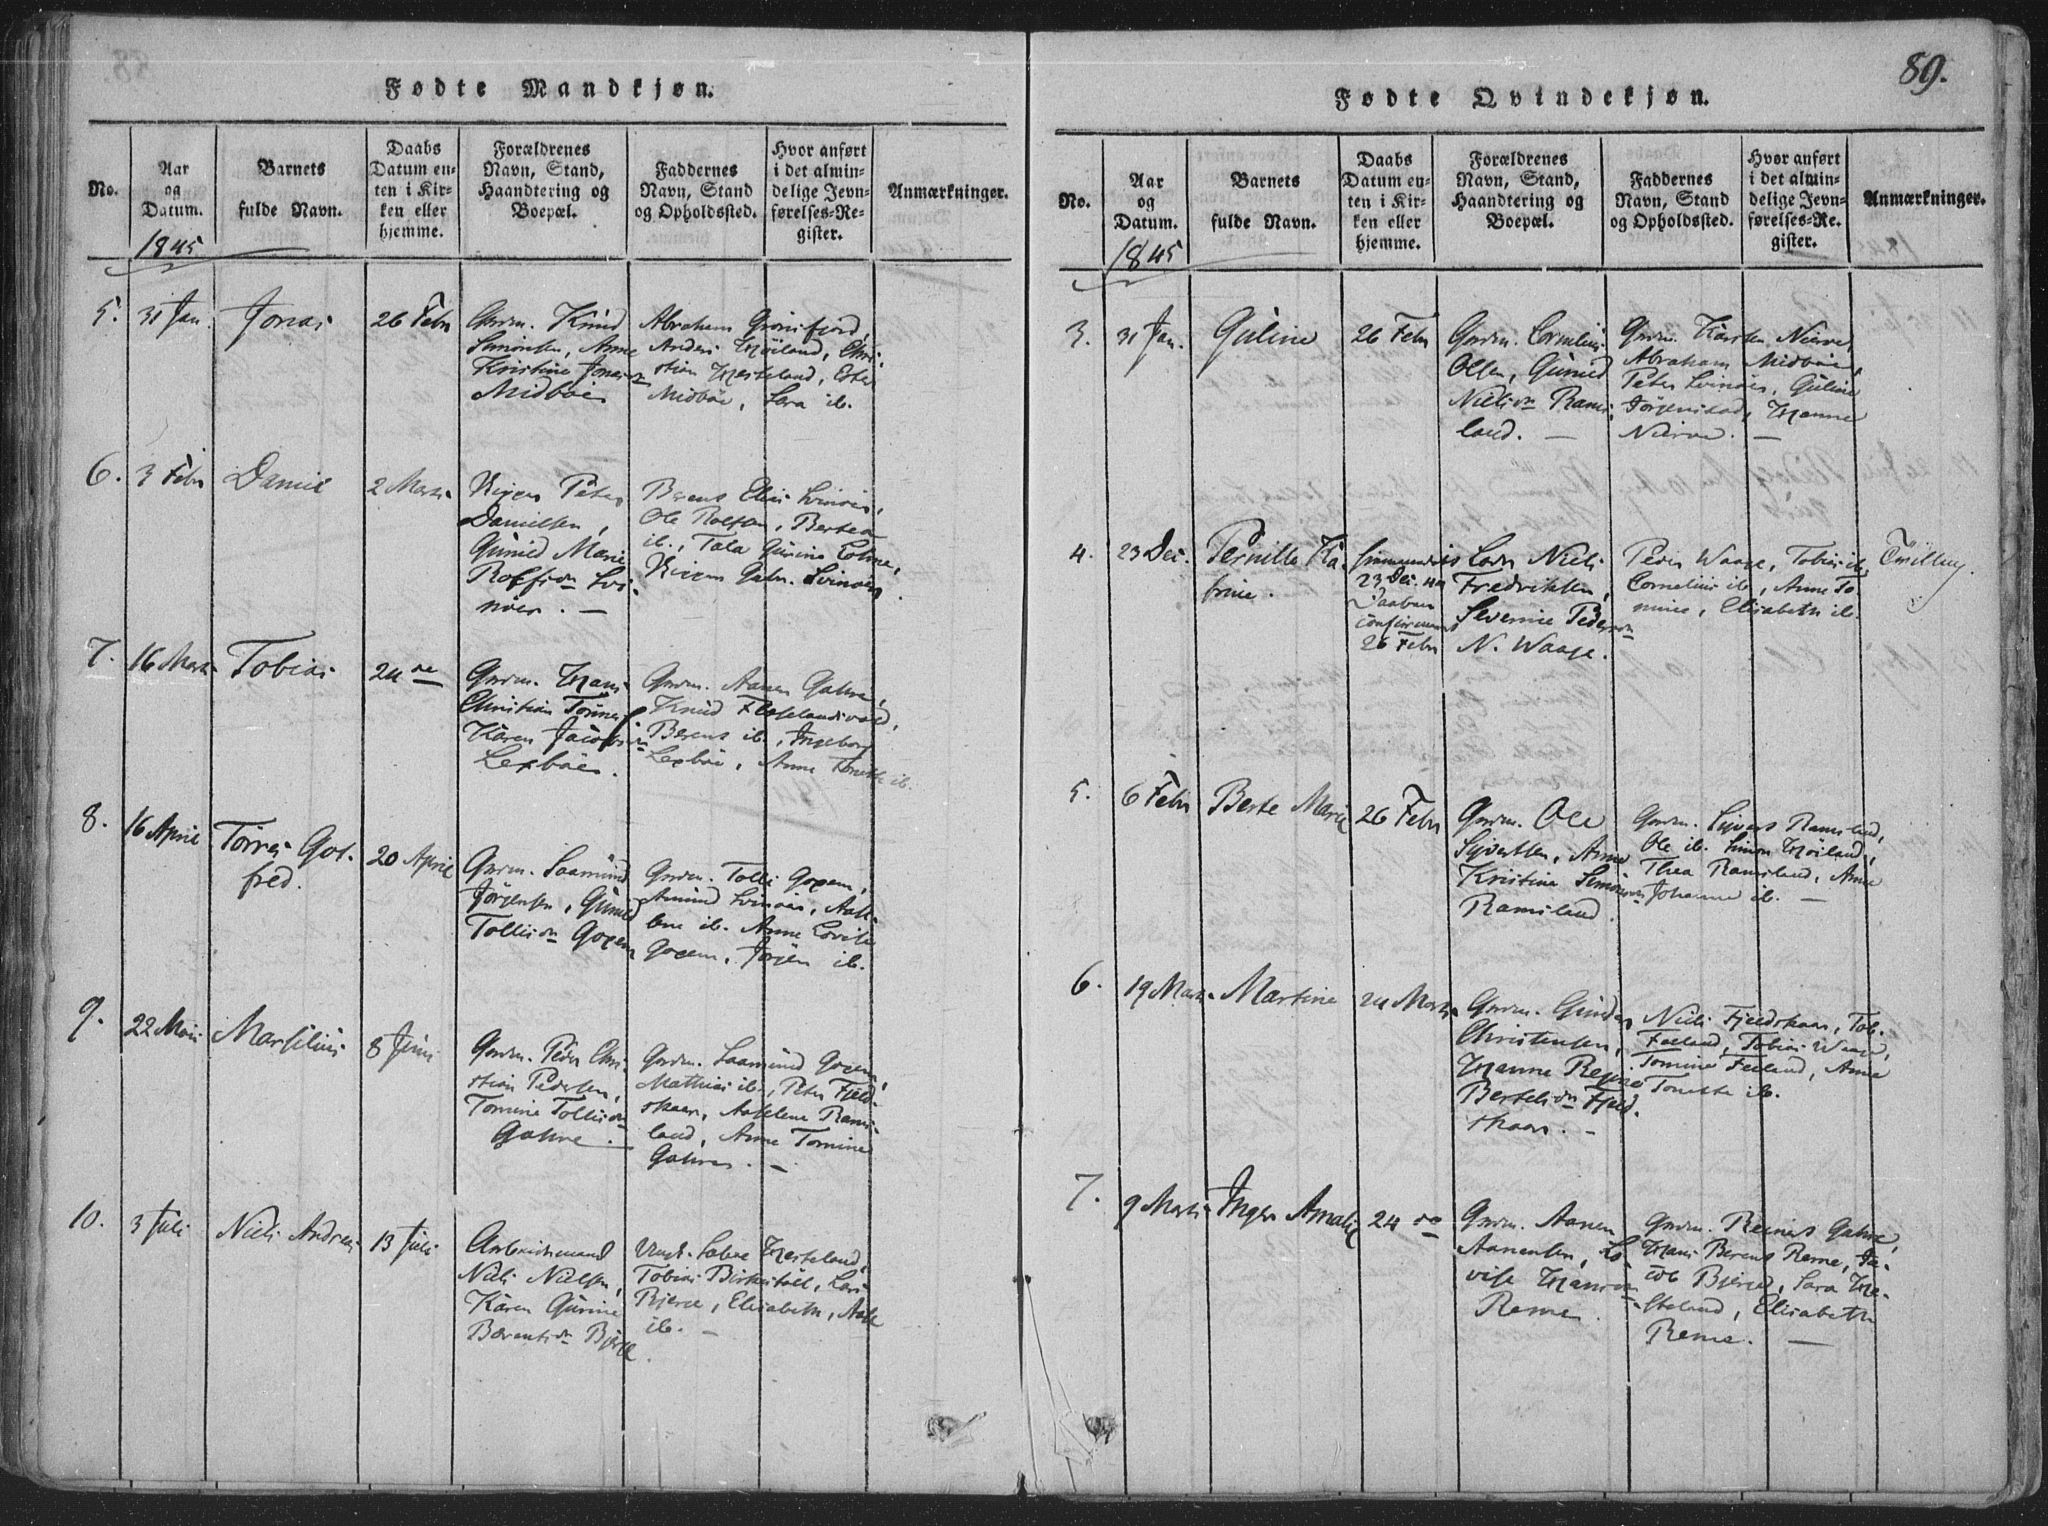 89.
Fødte Mandkjøn.
No.
Aar og Datum.
Barnets fulde Navn.
Daabs Datum enten i Kirken eller hjemme.
Forældrenes Navn, Stand, Haandtering og Boepæl.
Faddernes Navn, Stand og Opholdssted.
Hvor anført i det almindelige Jevnførelses-Register.
Anmærkninger.
1845
5.
31 Jan.
Jonas
26 Febr
Gaardm. Knud
Simonsen, Anne
Kristine Jonasdn
Midbøe
Abraham Grønsfjord,
Anders Høiland, Chri-
stian Hesteland, Ester
Midbøe, Sara ib.
6.
3 Febr
Daniel
2 Marts
Peter
Danielsen,
Gunild Marie
Rolfsdn Svi-
nøer. —
Berens Elias Svinøer,
Ole Rolfsen, Bertea
ib., Tala Gurine
Svinøer
7.
16 Marts
Tobias
24 de
Gaardm. Hans
Christian Tønnes
Karen Jacobsdn
Lexbøe.
Gaardm. Aanen Gahre,
Knud
Berens ib., Ingeborg
Lexbøe, Anne Tonette ib.
8.
16 April
Tørres Got-
fred.
20 April
Gaardm. Saamund
Jørgensen, Gunild
Tollisdn Goxem
Gaardm. Tolli Goxem,
Amund Svinøer, Asle-
lene ib. Anne Lovise
Goxem, Jørgen ib.
9.
22 Mai
Marselius
8 Juni
Gaardm. Peder Chri-
stian Pedersen,
Tomine Tollisdn
Gahre.
Gaardm. Saamund Goxem,
Mathias ib., Peter Fjeld-
skaar, Aaselene Rams-
land, Anne Tomine
Gahre. —
10.
3 Juli
Niels Andreas
13 Juli
Arbeidsmand
Niels Nielsen,
Karen Gurine
Berentsdn Bjerge.
Hesteland,
Tobias Birkestøll, Lars
Bjerge, Elisabeth,
ib. —
Fødte Qvindekjøn.
No.
Aar og Datum.
Barnets fulde Navn.
Daabs Datum enten i Kirken eller hjemme.
Forældrenes Navn, Stand, Haandtering og Boepæl.
Faddernes Navn, Stand og Opholdssted.
Hvor anført i det almindelige Jevnførelses-Register.
Anmærkninger.
1845
3.
31 Jan.
Guline
26 Febr
Gaardm. Cornelius
Olsen, Gunild
Nielsdn Rams-
land. —
Gaardm. Karsten Nierve,
Abraham Midbøe,
Peter Svinøer, Guline
Jørgenstad, Hanne
Nierve. —
4.
23 Dec.
Pernille Ka-
trine.
hjemmedøbt
23 Dec. 44
Daaben
confirmeret
26 Febr
Lods Niels
Fredriksen,
Severine Pedersdn
N. Waage.
Peder Waage, Tobias ib.,
Cornelius ib., Anne To-
mine, Elisabeth ib.
Tvilling.
5.
6 Febr
Berte Marie
26 Febr
Gaardm. Ole
Sivertsen, Anne
Kristine Simonsdn
Ramsland.
Gaardm. Sivert Ramsland,
Ole ib. Simon Høiland,
Thea Ramsland, Anne
Johanne ib. —
6.
19 Marts
Martine
24 Marts
Gaardm. Gunder
Christensen,
Hanne Regine
Bertelsdn Fjeld-
skaar. —
Niels Fjeldskaar, Tob.
Feeland, Tobias Waage,
Tomine Feeland, Anne
Tonette ib.
7.
9 Marts
Inger Amalie
24 de
Gaardm. Aanen
Aanensen, Lo-
vise Hansdn
Reme.
Gaardm. Reiner Gahre,
Hans Berens Reme, Ja-
cob Bjerge, Sara He-
steland, Elisabeth
Reme. —